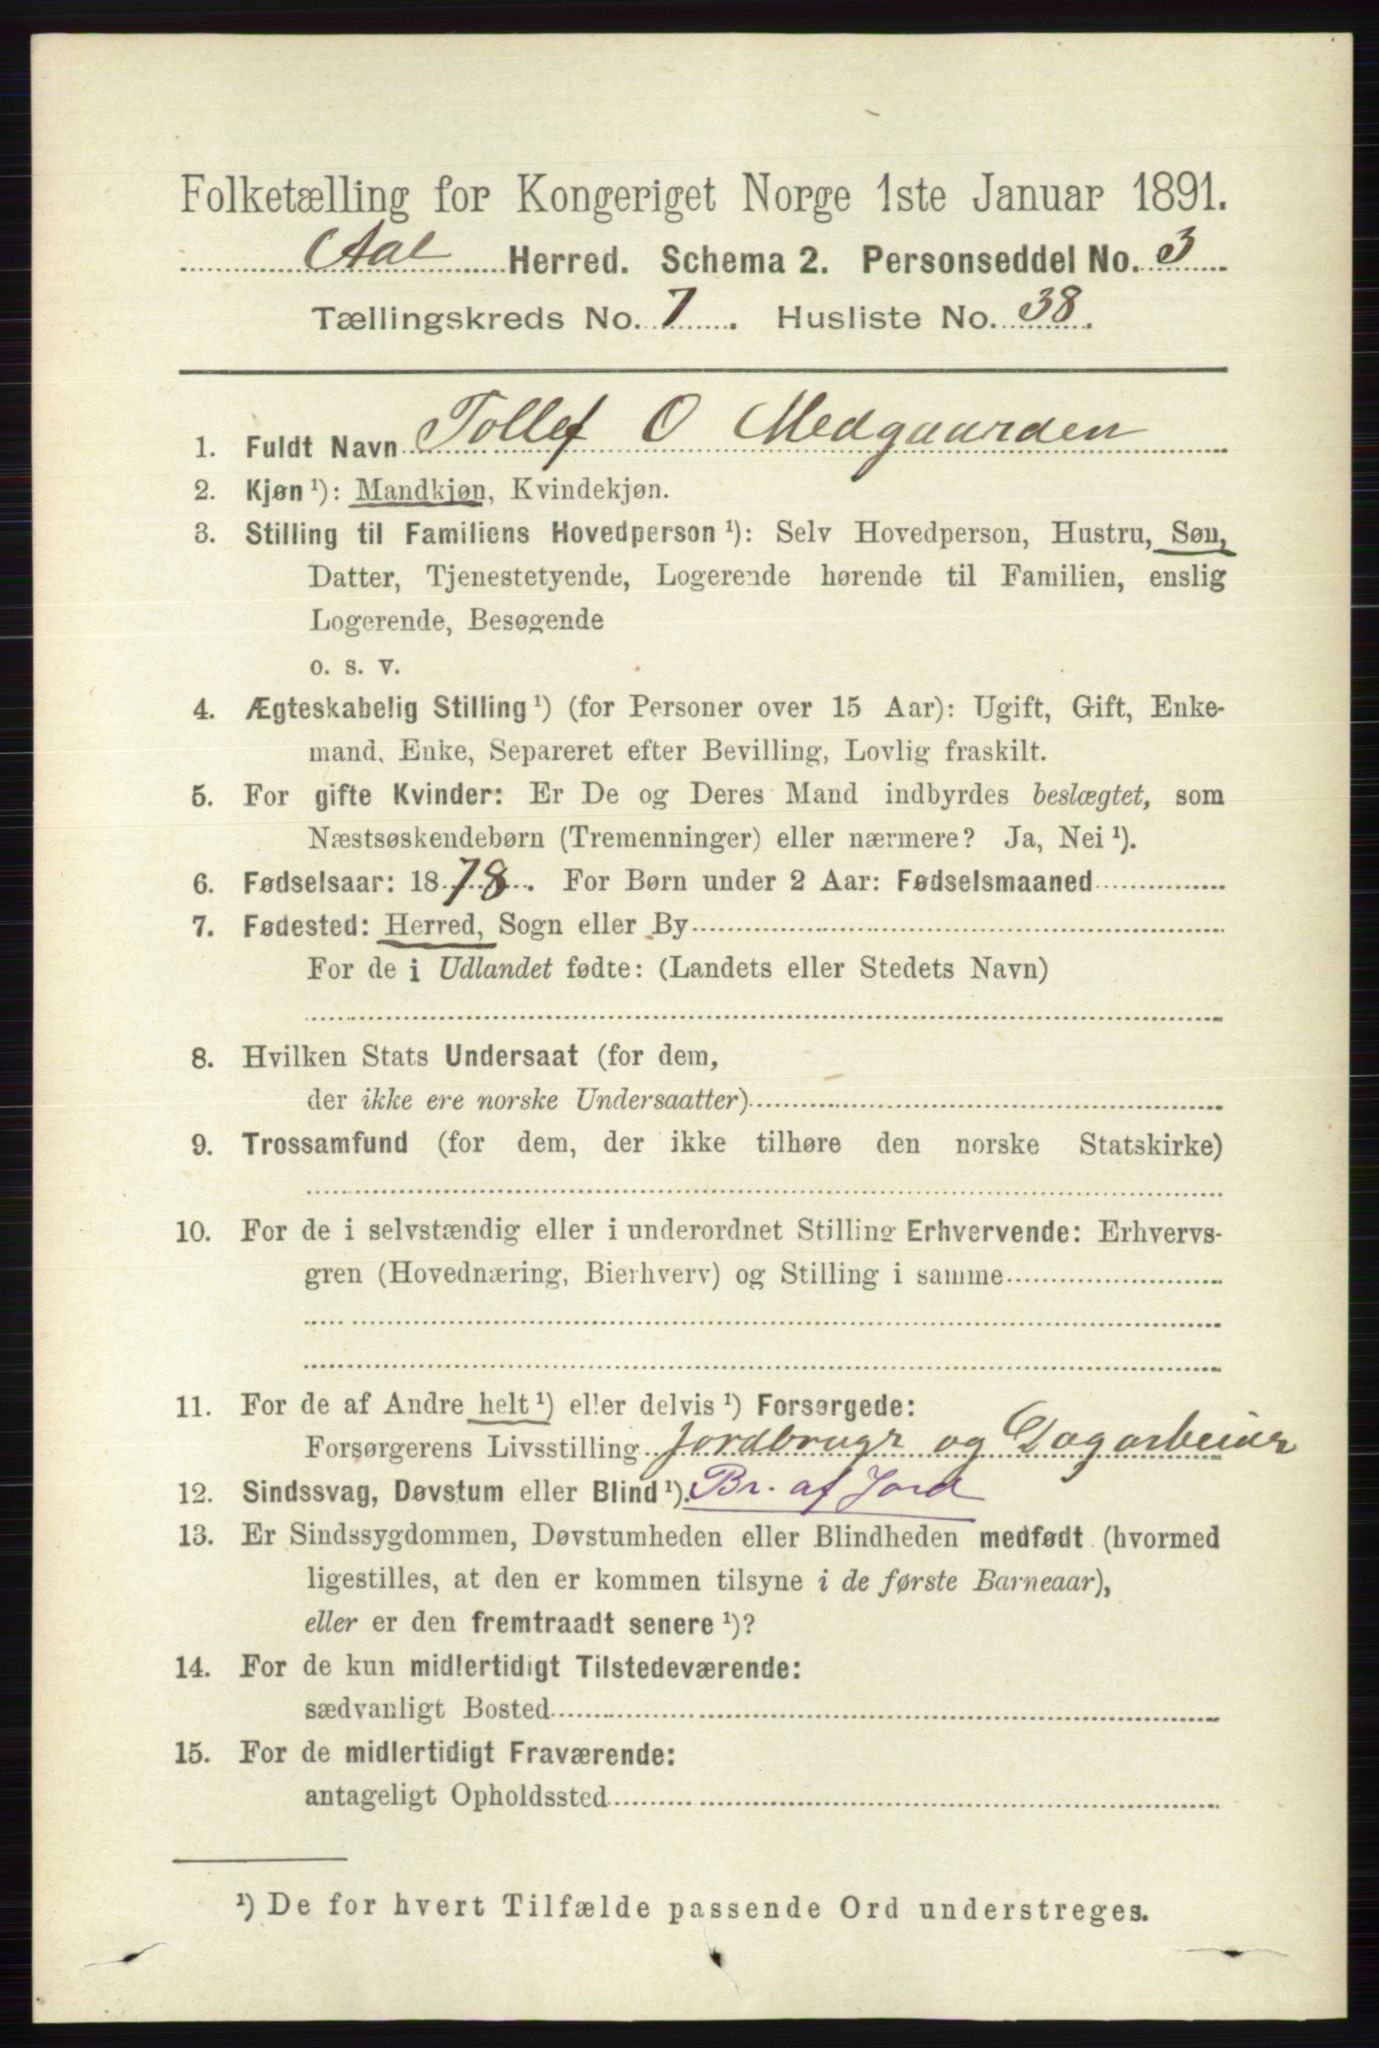 Folketælling for Kongeriget Norge 1ste Januar 1891.
Aal Herred. Schema 2. Personseddel No. 3
Tællingskreds No. 7. Husliste No. 38.
1. Fuldt Navn Tollef O Medgaarden
2. Kjøn¹): Mandkjøn, Kvindekjøn.
3. Stilling til Familiens Hovedperson¹): Selv Hovedperson, Hustru, Søn,
Datter, Tjenestetyende, Logerende hørende til Familien, enslig
Logerende, Besøgende
o. s. v.
4. Ægteskabelig Stilling¹) (for Personer over 15 Aar): Ugift, Gift, Enke-
mand, Enke, Separeret efter Bevilling, Lovlig fraskilt.
5. For gifte Kvinder: Er De og Deres Mand indbyrdes beslægtet, som
Næstsøskendebørn (Tremenninger) eller nærmere? Ja, Nei¹).
6. Fødselsaar: 1878. For Børn under 2 Aar: Fødselsmaaned
7. Fødested: Herred, Sogn eller By
For de i Udlandet fødte: (Landets eller Stedets Navn)
8. Hvilken Stats Undersaat (for dem,
der ikke ere norske Undersaatter)
9. Trossamfund (for dem, der ikke tilhøre den norske Statskirke)
10. For de i selvstændig eller i underordnet Stilling Erhvervende: Erhvervs-
gren (Hovednæring, Bierhverv) og Stilling i samme
11. For de af Andre helt¹) eller delvis¹) Forsørgede:
Forsørgerens Livsstilling Jordbrugr og Dagarbeider
12. Sindssvag, Døvstum eller Blind¹). Br. af Jord
13. Er Sindssygdommen, Døvstumheden eller Blindheden medfødt (hvormed
ligestilles, at den er kommen tilsyne i de første Barneaar),
eller er den fremtraadt senere¹)?
14. For de kun midlertidigt Tilstedeværende:
sædvanligt Bosted
15. For de midlertidigt Fraværende:
antageligt Opholdssted
¹) De for hvert Tilfælde passende Ord understreges.